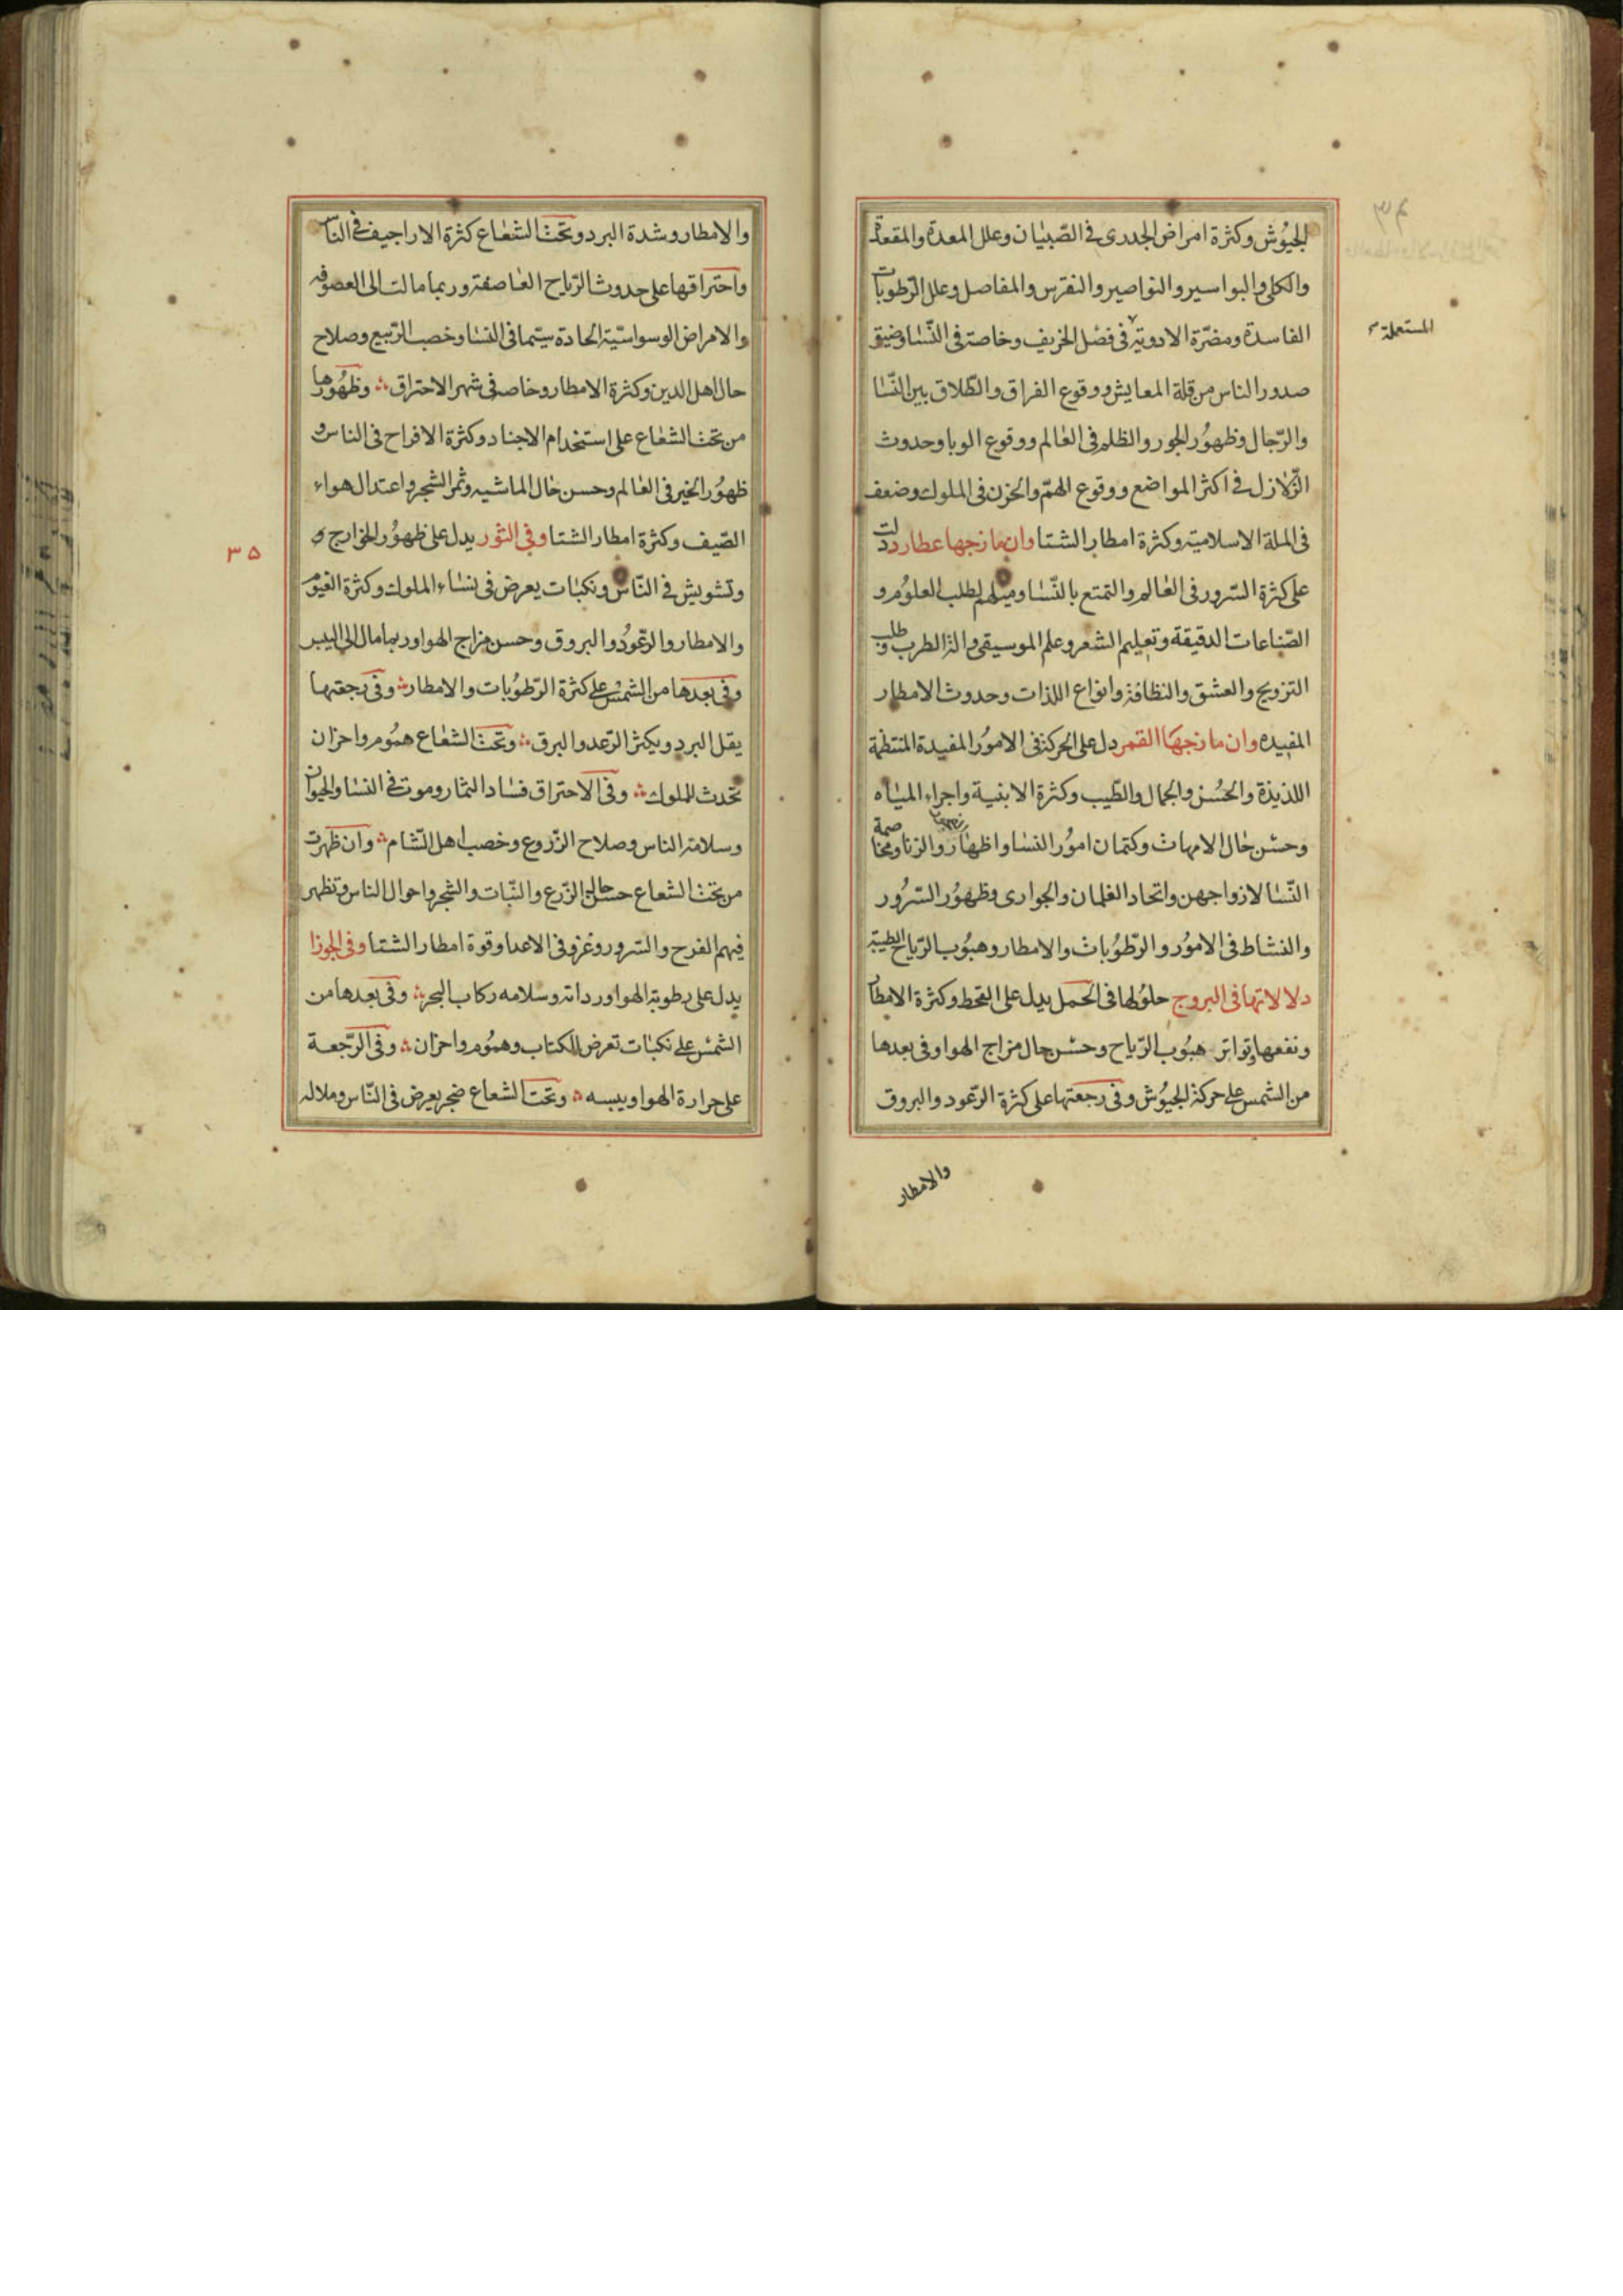 الجيُوش وكثرة امراض الجدرى فى الصّبيان وعلل المعدة والمقعدة
والكلى والبواسير والنواصير والنقرس والمفاصل وعلل الرّطوبات
الفاسدة ومضرّة الادوية فى فصل الخريف وخاصة فى النّسا وضيق
المستعملة
صدور الناس من قلة المعايش ووقوع الفراق والطّلاق بين النّسا
والرّجال وظهوُر الجور والظلم فى العالم ووقوع الوبا وحدوث
الزّلازل فى اكثر المواضع ووقوع الهمّ والحزن فى الملوك وضعف
فى الملة الاسلامية وكثرة امطار الشتا وان مازجها عطارد دلت
على كثرة السّرور فى العالم والتمتع بالنّسا وميلهم لطلب العلوُم و
الصّناعات الدقيقة وتعليم الشعر وعلم الموسيقى والذ الطرب وطلب
التزويج والعشق والنظافة وانواع اللذات وحدوث الامطار
المفيده وان مازجهَا القمر دل على الحركة فى الاموُر المفيدة المنتظمة
اللذيذة والحُسن والجمال والطّيب وكثرة الابنية واجراء المياه
وحسْن حال الامهات وكتمان اموُر النسا واظهار والزنا ومخاصمة
النّسا لازواجهن واتحاد الغلمان والجوارى وظهوُر السّرُور
والنشاط فى الاموُر والرّطوُبات والامطار وهبوُب الرّياح الطيبة
دلالاتها فى البروج حلوُلها فى الحَمل يدل على القحط وكثرة الامطار
ونفعها وتواتر هبوُب الرّياح وحسْن حال مزاج الهوا وفى بعدها
من الشمس على حركة الجيوُش وفى رجعتها على كثرة الرّعود والبروق
والامطار
والامطار وشدة البرد وتحت الشعاع كثرة الاراجيف فى الناس
واحتراقها على حدوث الرّياح العاصفة وربما مالت الى العصوفه
والامراض الوسواسيّة الحادة سيّما فى النسا وخصب الرّبيع وصلاح
حال اهل الدين وكثرة الامطار وخاصه فى شهر الاحتراق وظهُورها
من تحت الشعاع على استخدام الاجناد وكثرة الافراح فى الناس و
ظهوُر الخير فى العالم وحسن حال الماشيه وثمر الشجر واعتدال هواء
الصّيف وكثرة امطار الشتا وفى الثور يدل على ظهوُر الخوارج و
٣٥
وتشويش فى النّاس ونكبات يعرض فى نساء الملوك وكثرة الغيوُم
والامطار والرّعوُد والبروق وحسن مزاج الهوا وربما مال الى اليبس
وفى بعدها من الشمسْ على كثرة الرّطوُبات والامطار وفى رجعتها
يقل البرد ويكثر الرّعد والبرق وتحت الشعاع همُوم واحزان
تحدث للملوك وفى الاحتراق فساد الثمار وموت فى النسا والحيوان
وسلامة الناس وصلاح الزّروع وخصب اهل الشام وان ظهرت
من تحت الشعاع حسن حال الزّرع والنّبات والشجر واحوال الناس وتظهر
فيهم الفرح والسّرور وغزو فى الاعدا وقوة امطار الشتا وفى الجوزا
يدل على رطوبة الهوا ورداته وسلامه ركاب البحر وفى بعدها من
الشمسْ على نكبات تعرض للكتاب وهمُوم واحزان وفى الرّجعة
على حرارة الهوا ويبسه وتحت الشعاع ضجر يعرض فى النّاس وملاله